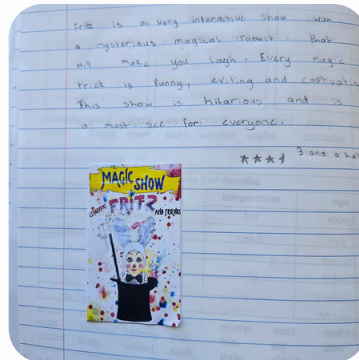 Fritz is a very interactive show with
a mysterious magical rabbit that
will make you laugh. Every magic
trick is funny, exiting and
This show is hilarious and is
a must see for everyone.
3 and a ha
MAGIC SHOW
FRITZ
AND FRIENDS